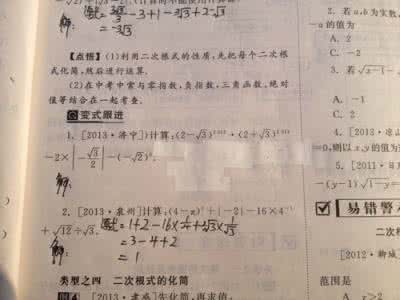 原式=3√3/3-3+1-3√3+2-√3
解: =-3√3
【点悟】(1)利用二次根式的性质,先把每个二次根
式化简,然后进行运算.
(2)在中考中常与零指数,负指数,三角函数,绝对
值等结合在一起考查.
变式跟进
1. [2013·济宁]计算:(2-√3)²⁰¹²·(2+√3)²⁰¹³
-2×|-√3/2|-(-√2)⁰.
解:
2. [2013·泉州]计算:(4-π)⁰+|-2|-16×4⁻¹
+√12÷√3. 原式=1+2-16×1/4+2√3×1/√3
解: =3-4+2
=1
类型之四 二次根式的化简
先化简,再求值
2. 若a,b为实数,
a的值为
A. 2
C. -2
3. 若√x-1-
A. -1
C. 2
4. [2013·凉山
=0,则以x,y的值为
5. [2011·日
-(y-1)√1-y=
易错警
二次根
[2012·聊城]
范围是
A. x≥2